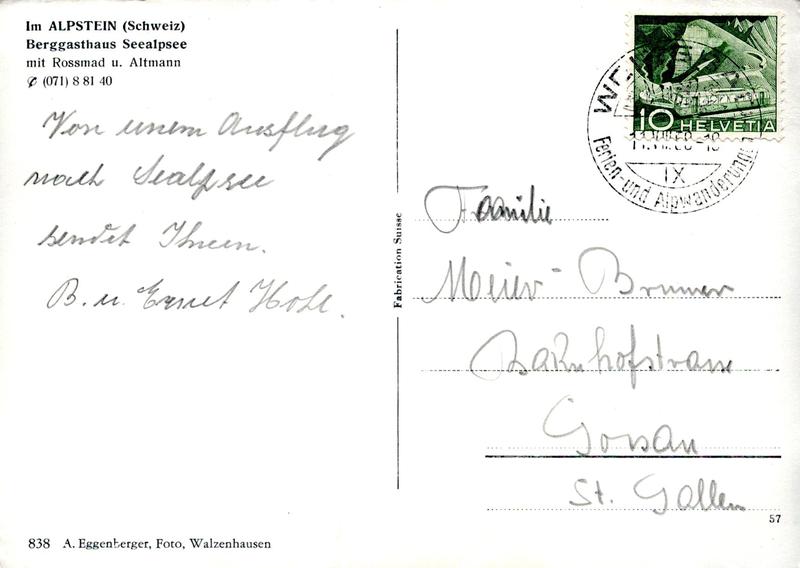 Im ALPSTEIN (Schweiz)
Berggasthaus Seealpsee
mit Rossmad u. Altmann
✆ (071) 8 81 40
Von einem Ausflug
nach Sealpsee
sendet Ihnen.
B. u. Ernst Hohl.
838 A. Eggenberger, Foto, Walzenhausen
Fabrication Suisse
10 HELVETIA
IX
Ferien- und Alpwanderung
Familie
Meier-Brunner
Bahnhofstrasse
Gossau
St. Gallen
57